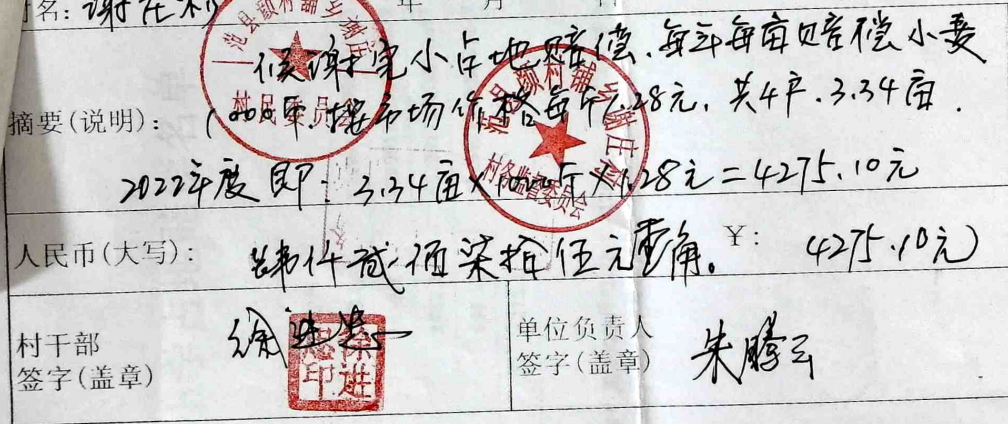 名：谢在利 年 月
侯谢宅小占地赔偿，每年每亩赔偿小麦
摘要(说明)： 1000斤，按市场价格每斤1.28元，共4户，3.34亩．
2022年度即：3.34亩×1000斤×1.28元=4275.10元
人民币(大写)： 肆仟贰佰柒拾伍元壹角。 ￥: 4275.10元）
村干部 签字(盖章) 徐进 单位负责人 签字(盖章) 朱腾云
范县颜村铺乡谢庄 村民委员会
范县颜村铺乡谢庄村 村务监督委员会